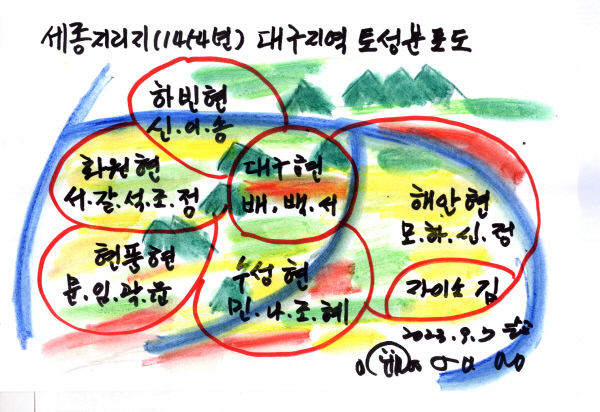 세종지리지(1454년) 대구지역 토성분포도
하빈현
신.이.송
화원현
서.갈.석.조.정
대구현
배.백.서
해안현
모.하.신.정
현풍현
문.임.곽.윤
수성현
빈.나.조.혜
자이소 김
2023.9.7